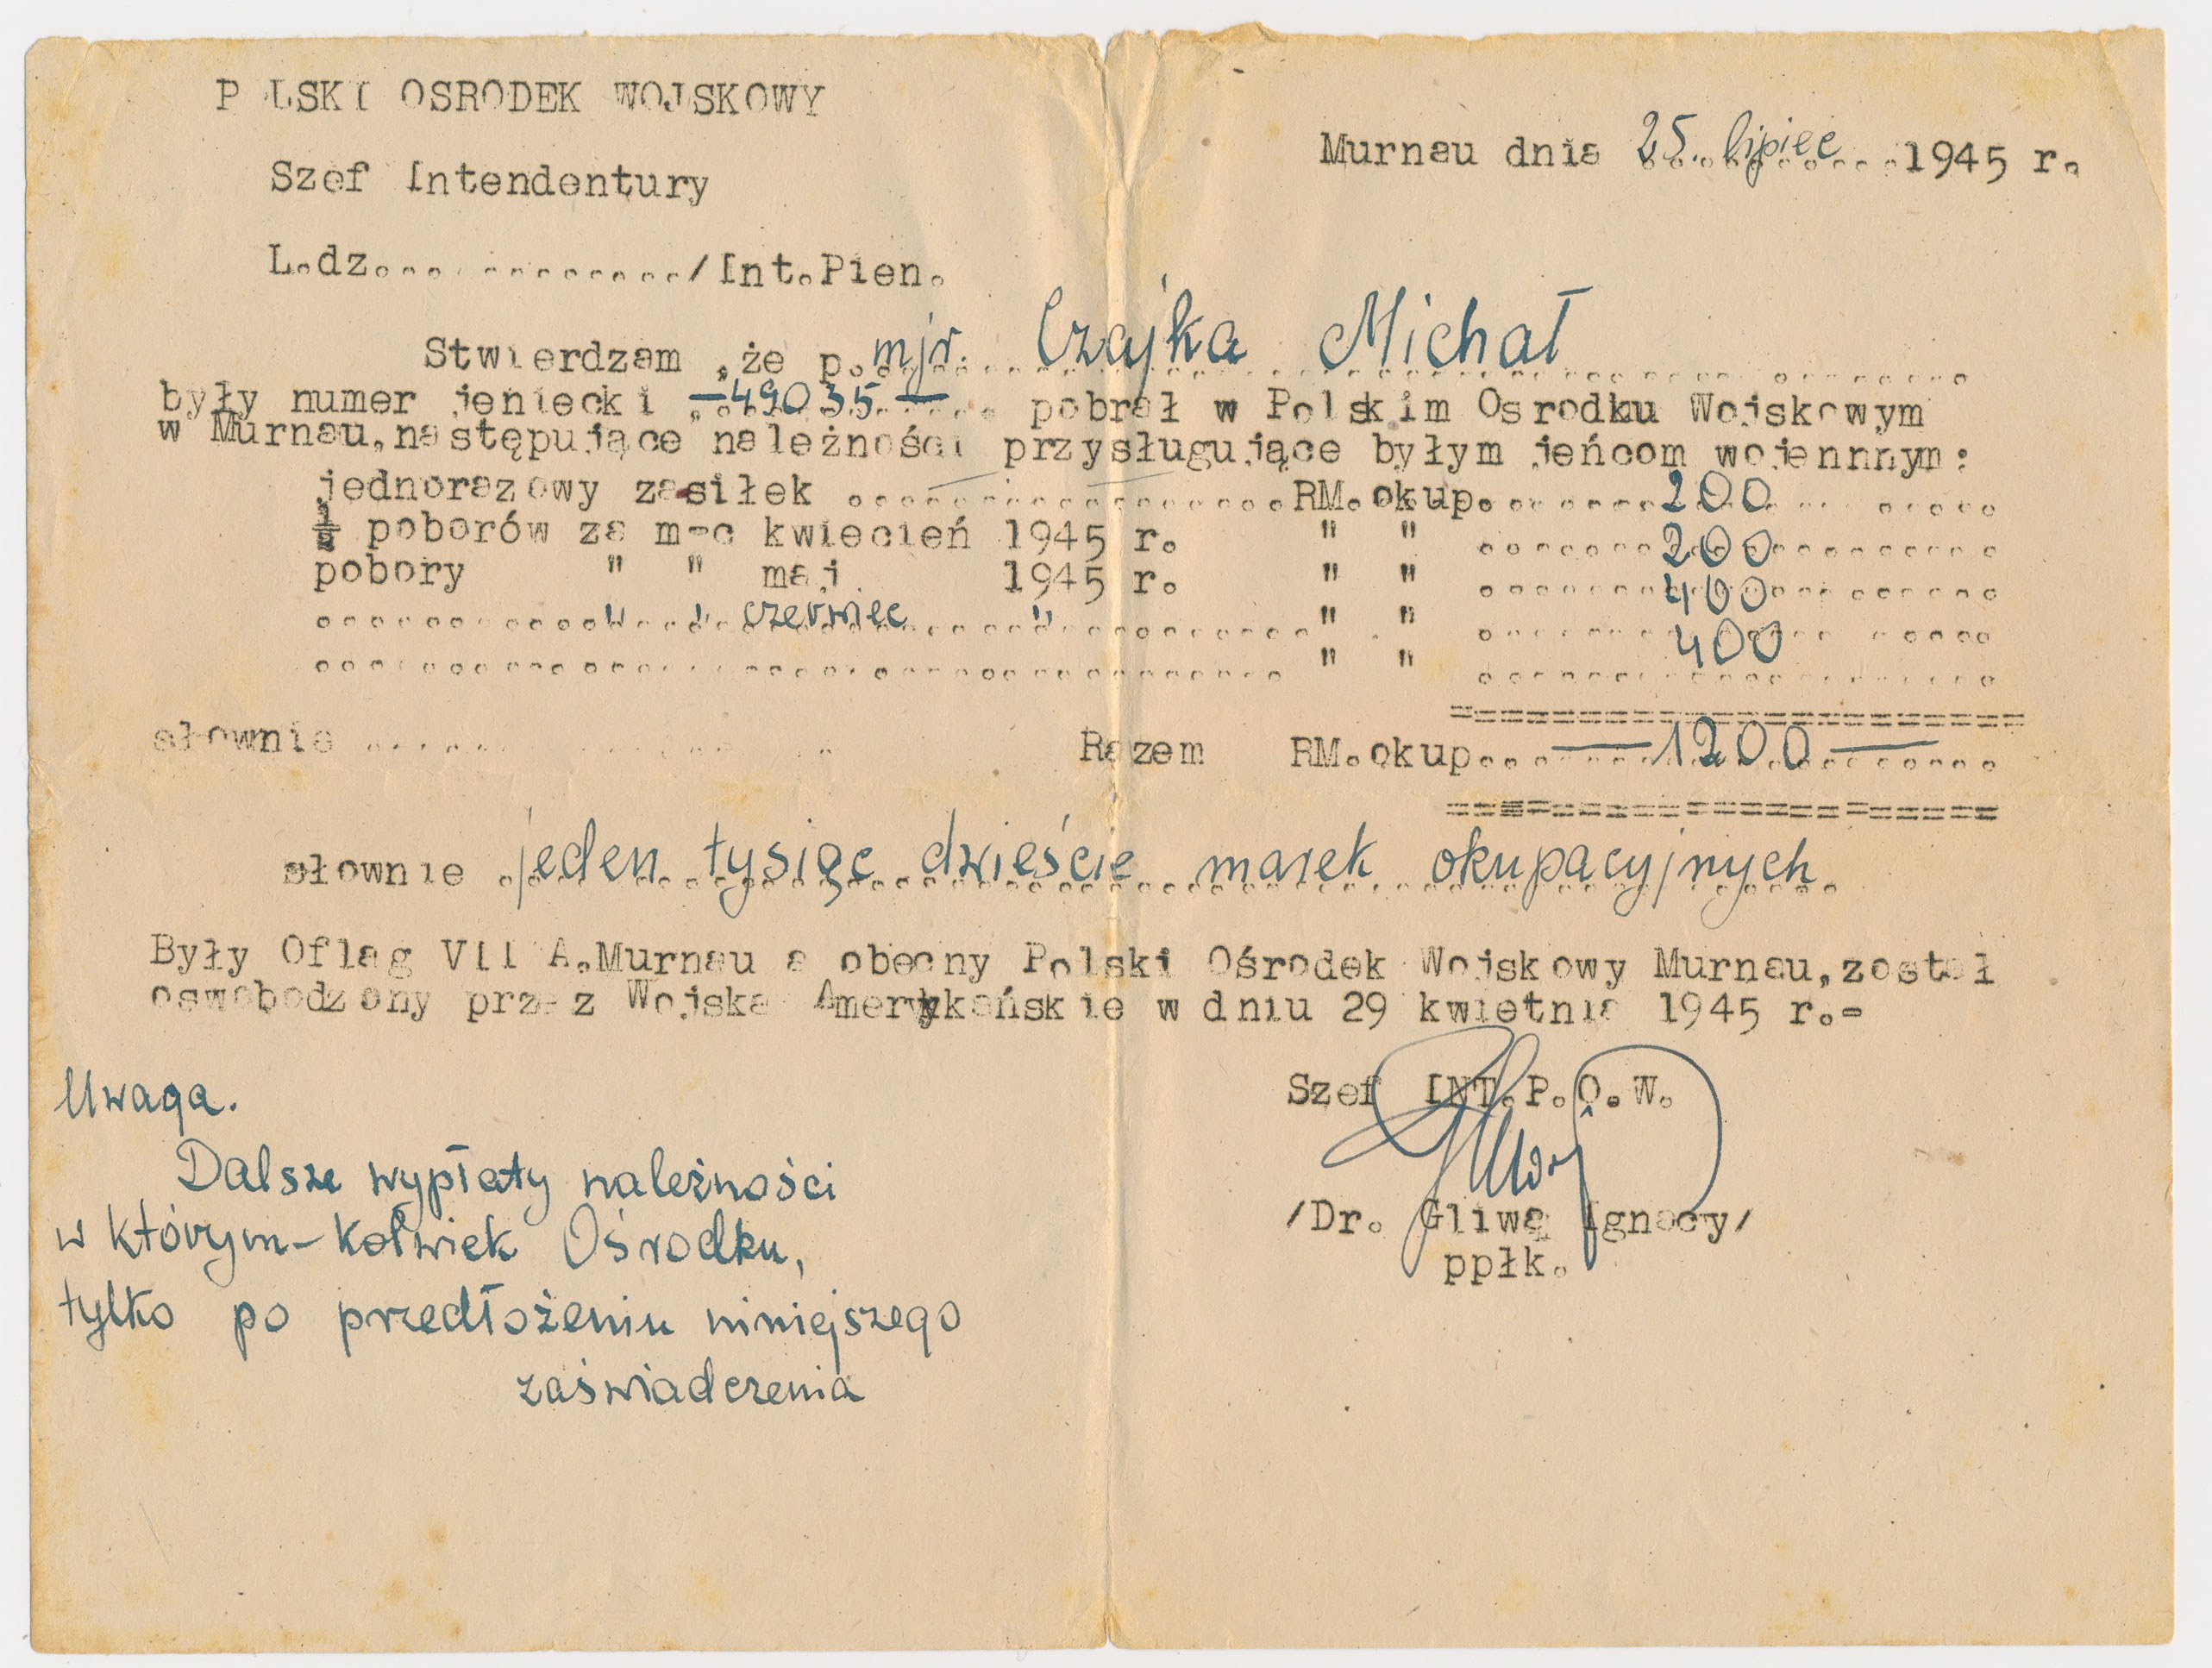 POLSKI OSRODEK WOJSKOWY
Murnau dnia 25. lipiec 1945 r.
Szef Intendentury
L.dz............./Int.Pien.
Stwierdzam ,że p. mjr. Czajka Michał
były numer jeniecki —49035— pobrał w Polskim Osrodku Wojskowym
w Murnau,następujące należności przysługujące byłym jeńcom wojennnym:
jednorazowy zasiłek ................RM.okup. 200
½ poborów za m-c kwiecień 1945 r. " " 200
pobory " " maj 1945 r. " " 400
" " czerwiec " " " 400
" "
słownie ............ Razem RM.okup. —1200—
słownie jeden tysiąc dwieście marek okupacyjnych.
Były Oflag VII A.Murnau a obecny Polski Ośrodek Wojskowy Murnau,został
oswobodzony przez Wojska Amerykańskie w dniu 29 kwietnia 1945 r.=
Szef INT.P.O.W.
/Dr. Gliwa Ignacy/
ppłk.
Uwaga.
Dalsze wypłaty należności
w którym-kolwiek Ośrodku,
tylko po przedłożeniu niniejszego
zaświadczenia